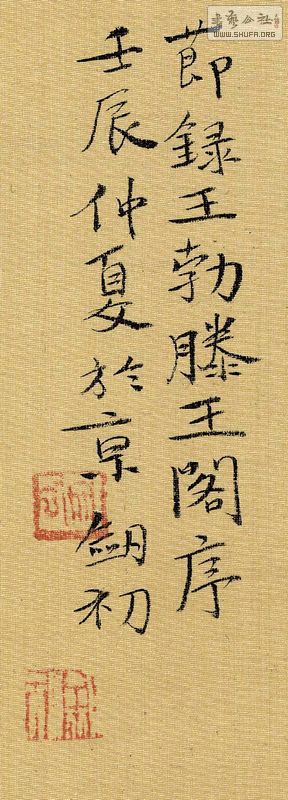 節録王勃滕王閣序
壬辰仲夏於京劔初
書藝公社
WWW.SHUFA.ORG